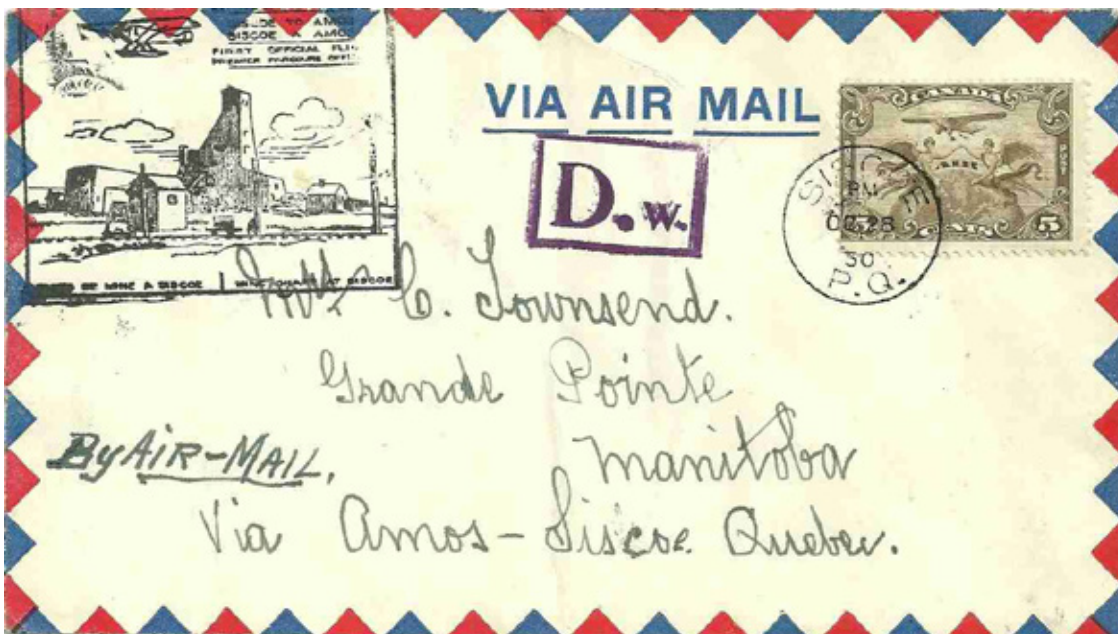 TO AMOS
SISCOE A AMOS
FIRST OFFICIAL
PREMIER PARCOURS
MINE A SISCOE
AT SISCOE
VIA AIR MAIL
D.w.
CANADA
5 CENTS 5
SISCOE
PM
OC 28
30
P.Q.
C. Townsend.
Grande Pointe
Manitoba
By AIR-MAIL,
Via Amos-Siscoe Quebec.